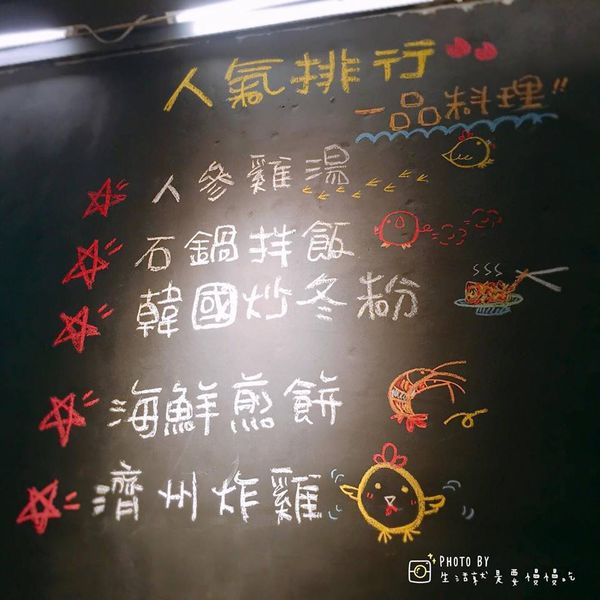 人氣排行
一品料理!!
人參雞湯
石鍋拌飯
韓國炒冬粉
海鮮煎餅
濟州炸雞
PHOTO BY
生活就是要慢慢吃